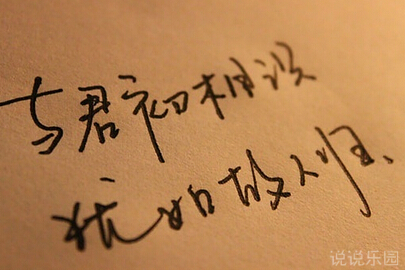 与君初相识
犹如故人归、
说说乐园